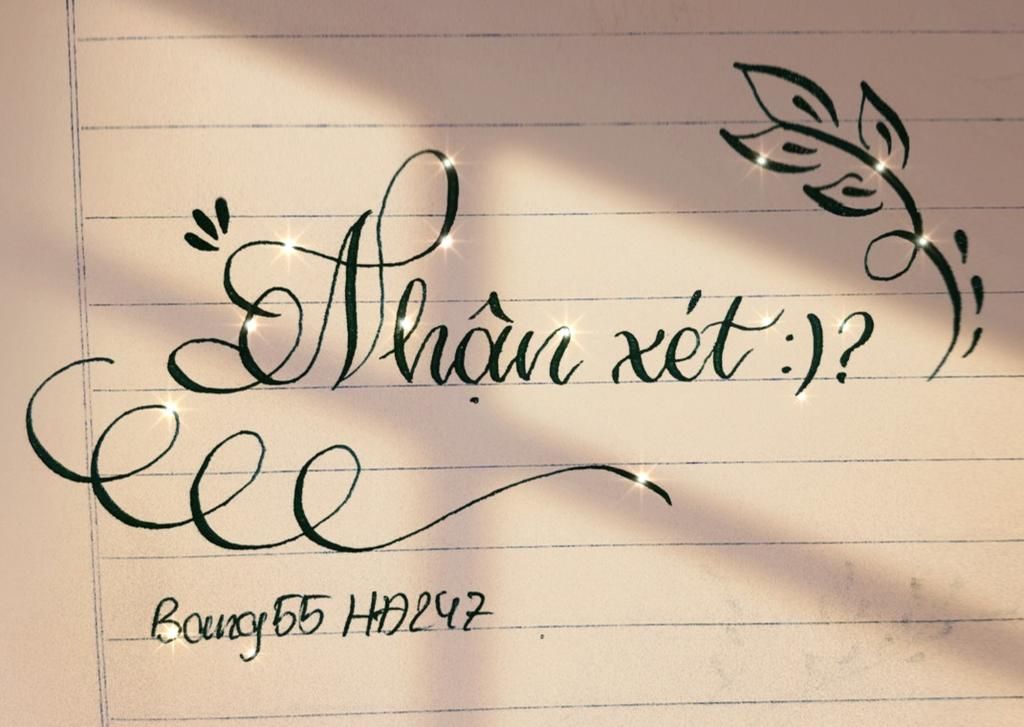 Nhận xét :)?
Bcung55 HD247